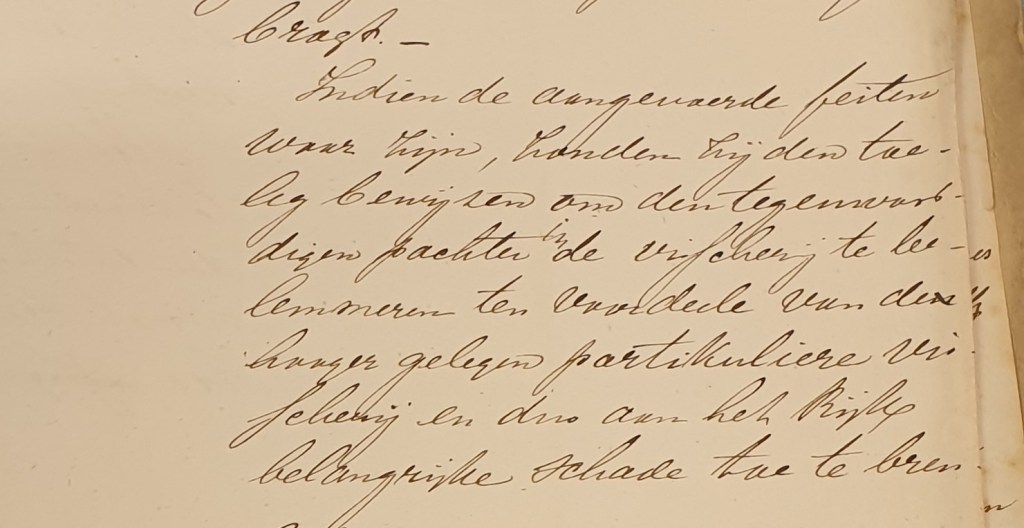 bragt. —
Indien de aangevoerde feiten
waar zijn, zouden zij den toe-
leg bewijzen om den tegenwoor-
digen pachter in de visscherij te be-
lemmeren ten voordeele van den
hooger gelegen partikuliere vis
scherij en dus aan het Rijk
belangrijke schade toe te bren